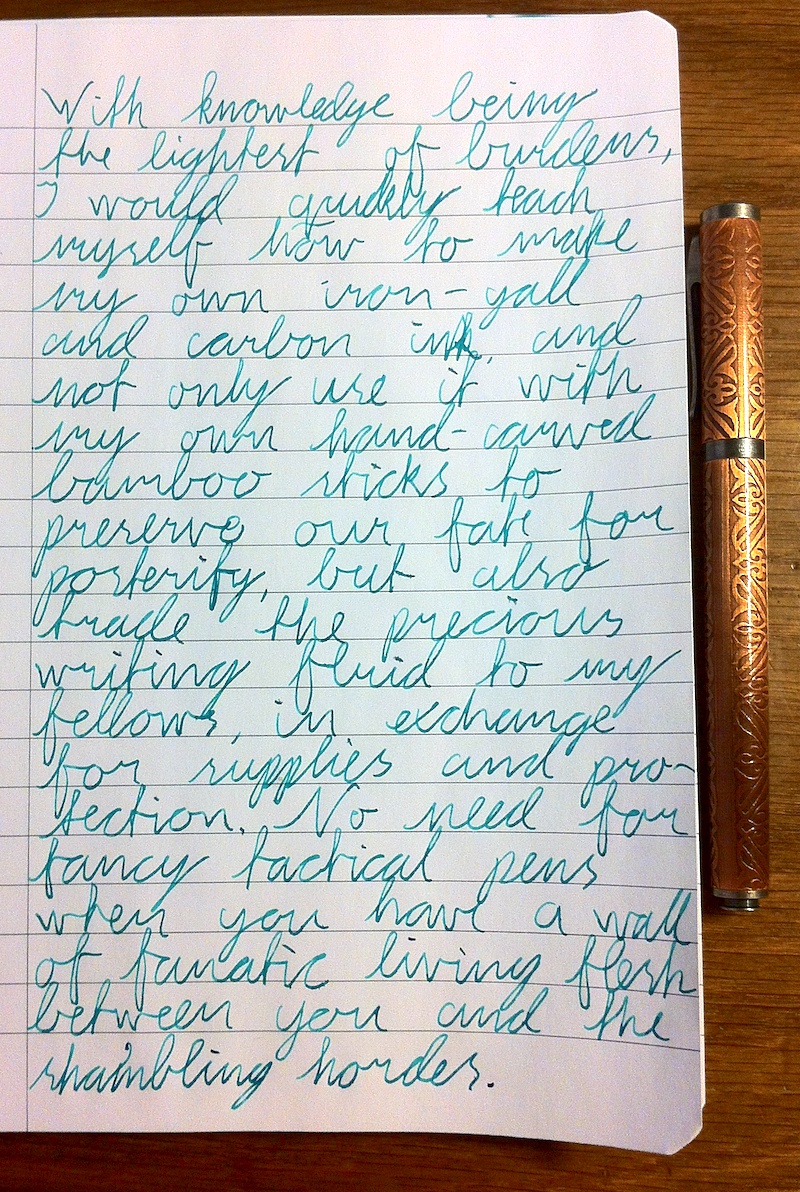 With knowledge being
the lightest of burdens,
I would quickly teach
myself how to make
my own iron-gall
and carbon ink, and
not only use it with
my own hand-carved
bamboo sticks to
preserve our fate for
posterity, but also
trade the precious
writing fluid to my
fellows, in exchange
for supplies and pro-
tection. No need for
fancy tactical pens
when you have a wall
of fanatic living flesh
between you and the
shambling hordes.